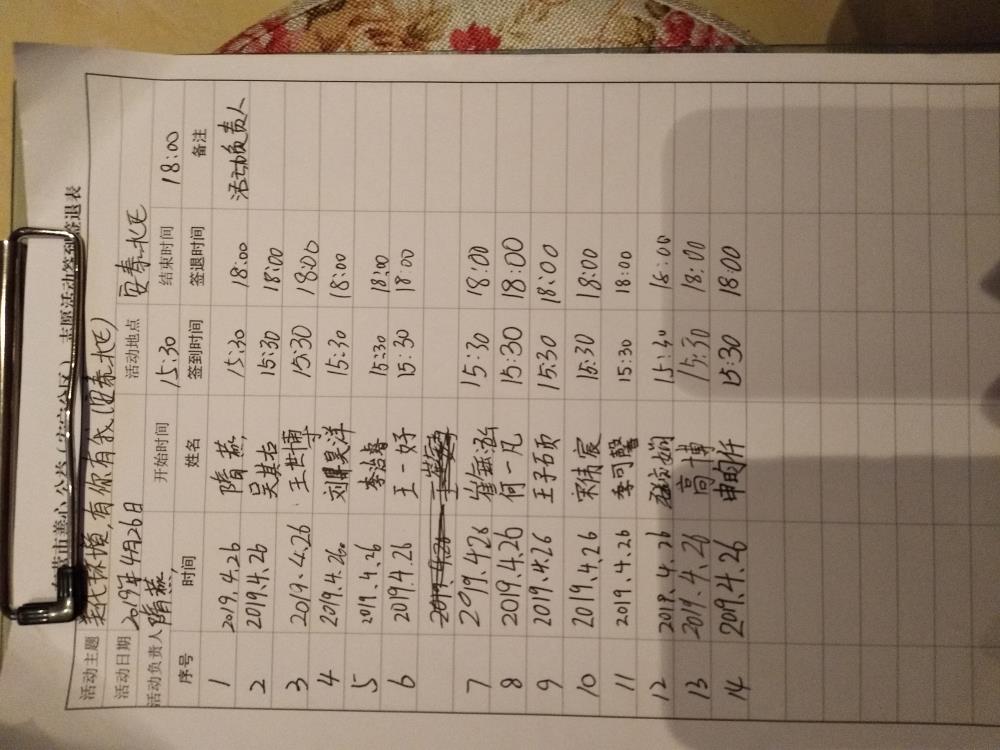 志愿活动签到签退表
活动主题 美化环境,有你有我(安泰北区)
活动日期 2019年4月26日 活动地点 安泰北区
活动负责人 隋燕 开始时间 15:30 结束时间 18:00
序号 时间 姓名 签到时间 签退时间 备注
1 2019.4.26 隋燕 15:30 18:00 活动负责人
2 2019.4.26 吴其右 15:30 18:00
3 2019.4.26 王世博 15:30 18:00
4 2019.4.26 刘昊洋 15:30 18:00
5 2019.4.26 李治睿 15:30 18:00
6 2019.4.26 王一好 15:30 18:00
7 2019.4.26 15:30 18:00
8 2019.4.26 何一凡 15:30 18:00
9 2019.4.26 王子硕 15:30 18:00
10 2019.4.26 宋伟宸 15:30 18:00
11 2019.4.26 李可馨 15:30 18:00
12 2019.4.26 15:30 18:00
13 2019.4.26 高博 15:30 18:00
14 2019.4.26 15:30 18:00